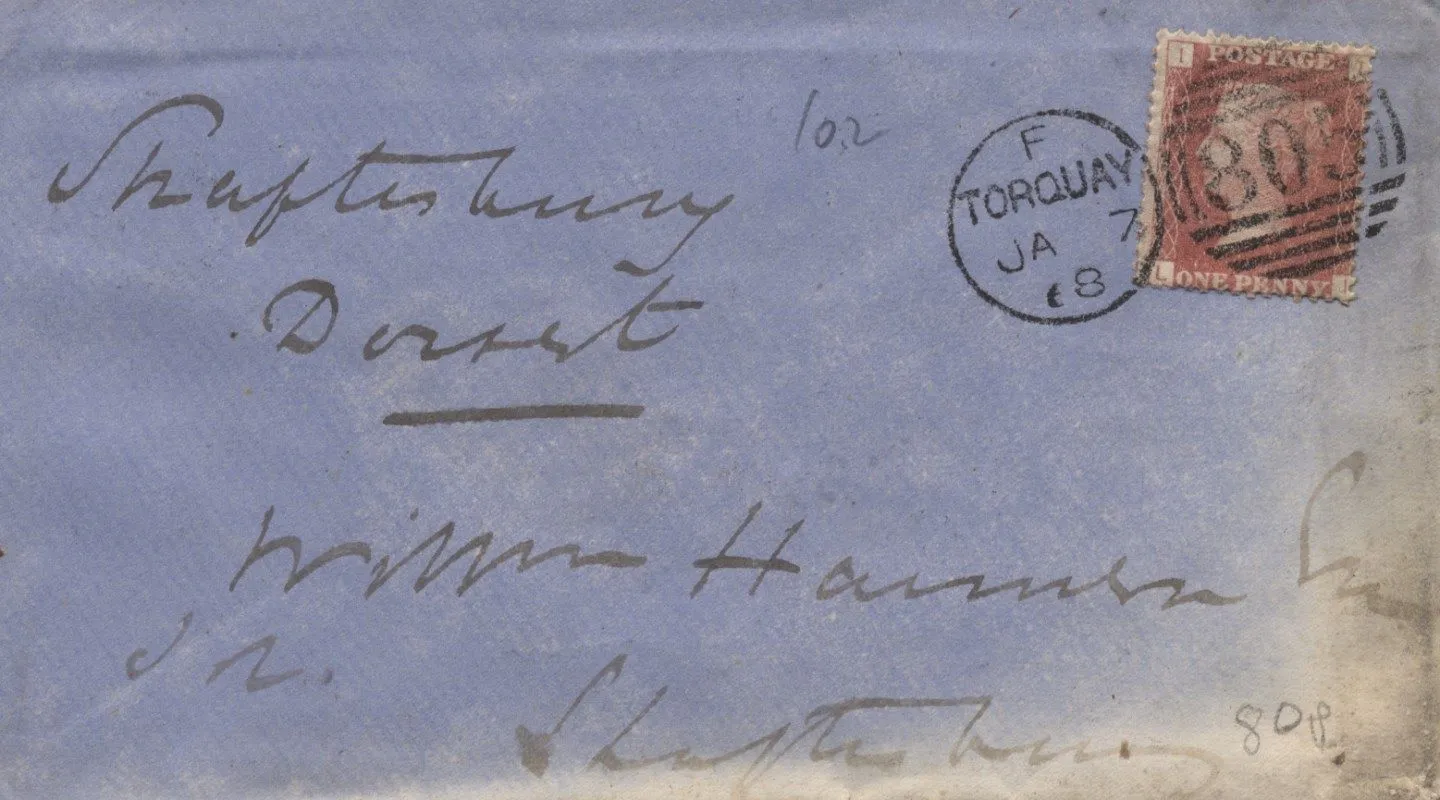 102
I POSTAGE
805
L ONE PENNY
F
TORQUAY
JA 7
68
Shaftesbury
Dorset
William
Jr.
Shaftesbury
80p